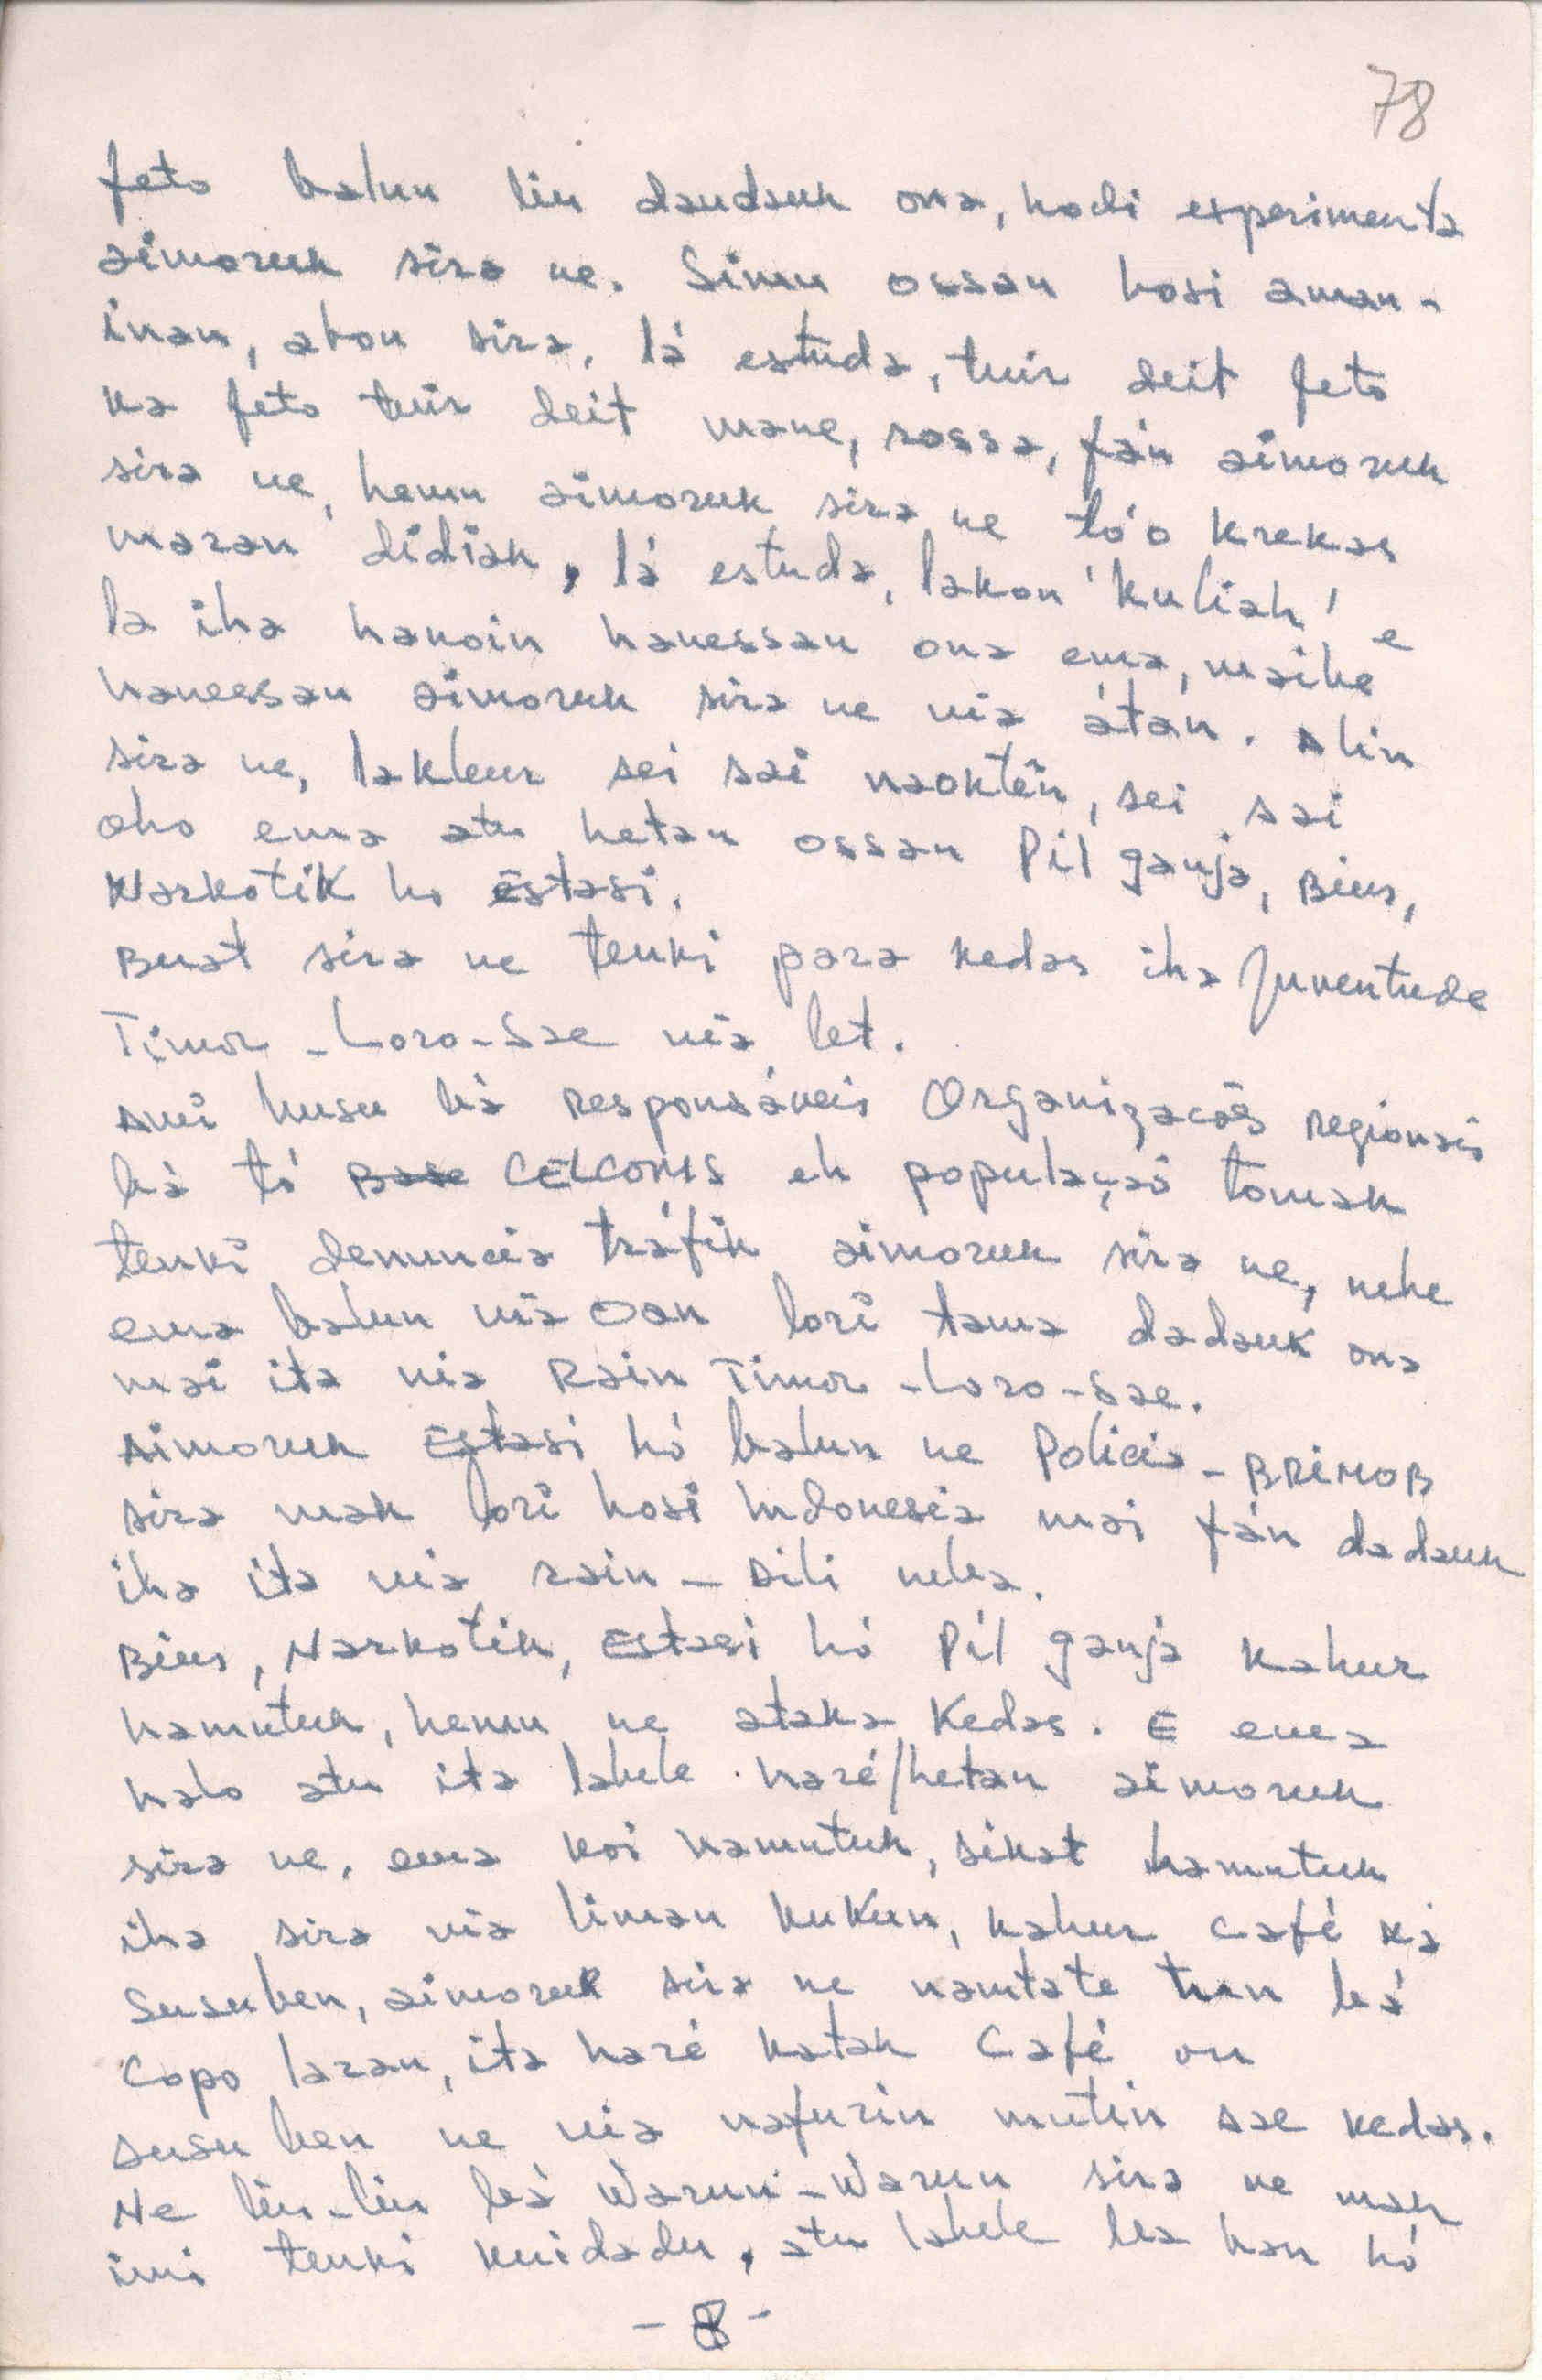 78
feto balun liu daudauk ona, hodi experimenta
aimoruk sira ne. Simu ossan hosi aman-
inan, abon sira, lá estuda, tuir deit feto
ka feto tuir deit mane, sossa, fá'n aimoruk
sira ne, hemu aimoruk sira ne to'o krekas
maran didiak, lá estuda, lakon 'kuliah' e
la iha hanoin hanessan ona ema, maibe
hanessan aimoruk sira ne nia átan. Alin
sira ne, lakleur sei sai naoktên, sei sai
oho ema atu hetan ossan Pil ganja, Bius,
Narkotik ho Estasi.
Buat sira ne tenki para kedas iha Juventude
Timor-Loro-Sae nia let.
Ami husu bá responsáveis Organizações regionais
bá tó Base CELCOMS eh população tomak
tenki denuncia tráfik aimoruk sira ne, nebe
ema balun nia oan lori tama dadauk ona
mai ita nia Rain Timor-Loro-Sae.
Aimoruk Estasi hó balun ne Policia-BRIMOB
sira mak lori hosi Indonesia mai fán dadauk
iha ita nia rain - Dili neba.
Bius, Narkotik, Estasi hó Pil ganja kahur
hamutuk, hemu ne ataka kedas. E ema
halo atu ita labele haré/hetan aimoruk
sira ne, ema koi hamutuk, sikat hamutuk
iha sira nia liman kukun, kahur café ká
Susuben, aimoruk sira ne namtate tun bá
Copo laran, ita haré katak Café ou
susu ben ne nia nafurin mutin sae kedas.
Ne liu-liu bá Warun-Warun sira ne mak
imi tenki kuidadu, atu labele ba han hó
-8-